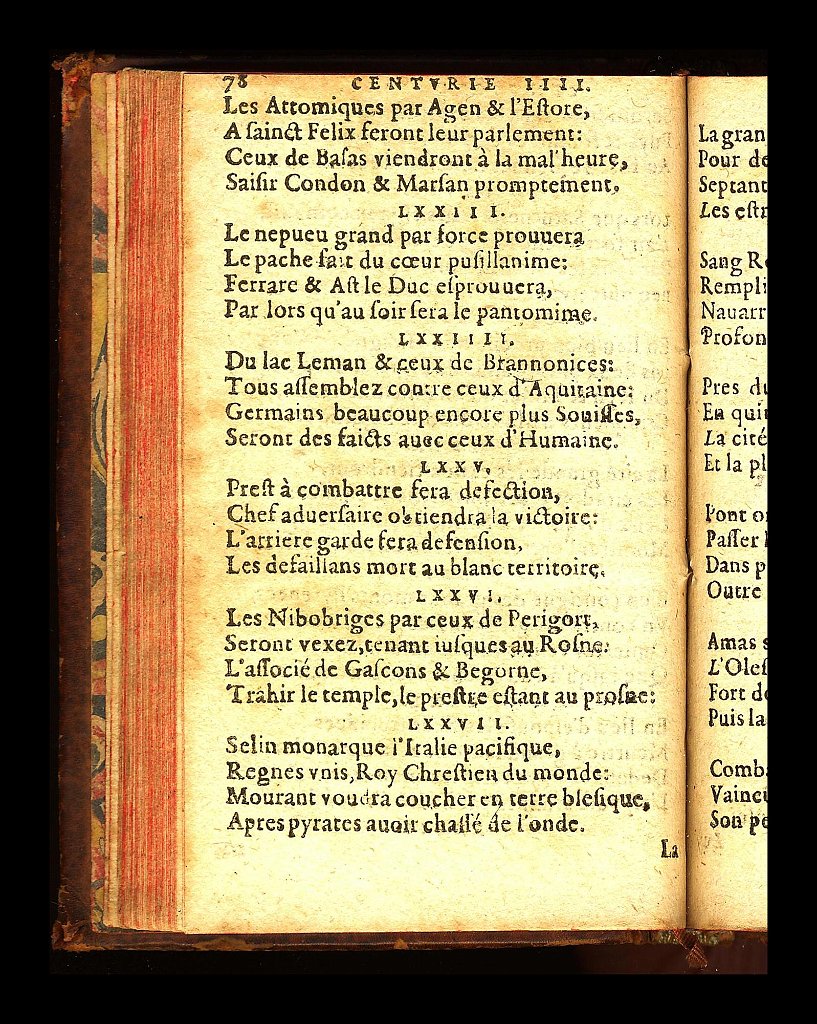 78 CENTVRIE IIII.
Les Attomiques par Agen & l'Eſtore,
A ſainct Felix feront leur parlement:
Ceux de Baſas viendront à la mal'heure,
Saiſir Condon & Marſan promptement.
LXXIII.
Le nepueu grand par force prouuera
Le pache fait du cœur puſillanime:
Ferrare & Aſt le Duc eſprouuera,
Par lors qu'au ſoir ſera le pantomime.
LXXIIII.
Du lac Leman & ceux de Brannonices:
Tous aſſemblez contre ceux d'Aquitaine:
Germains beaucoup encore plus Souiſſes,
Seront des faicts auec ceux d'Humaine.
LXXV.
Preſt à combattre fera defection,
Chef aduerſaire obtiendra la victoire:
L'arriere garde fera defenſion,
Les defaillans mort au blanc territoire.
LXXVI.
Les Nibobriges par ceux de Perigort,
Seront vexez, tenant iuſques au Roſne:
L'aſſocié de Gaſcons & Begorne,
Trahir le temple, le preſtre eſtant au proſne:
LXXVII.
Selin monarque l'Italie pacifique,
Regnes vnis, Roy Chreſtien du monde:
Mourant voudra coucher en terre bleſique,
Apres pyrates auoir chaſſé de l'onde.
La
La gran
Pour de
Septant
Les eſtr
Sang R
Rempli
Nauarr
Profon
Pres du
En qui
La cité
Et la pl
Pont o
Paſſer
Dans p
Outre
Amas s
L'Oleſ
Fort de
Puis la
Comb
Vaincu
Son pe